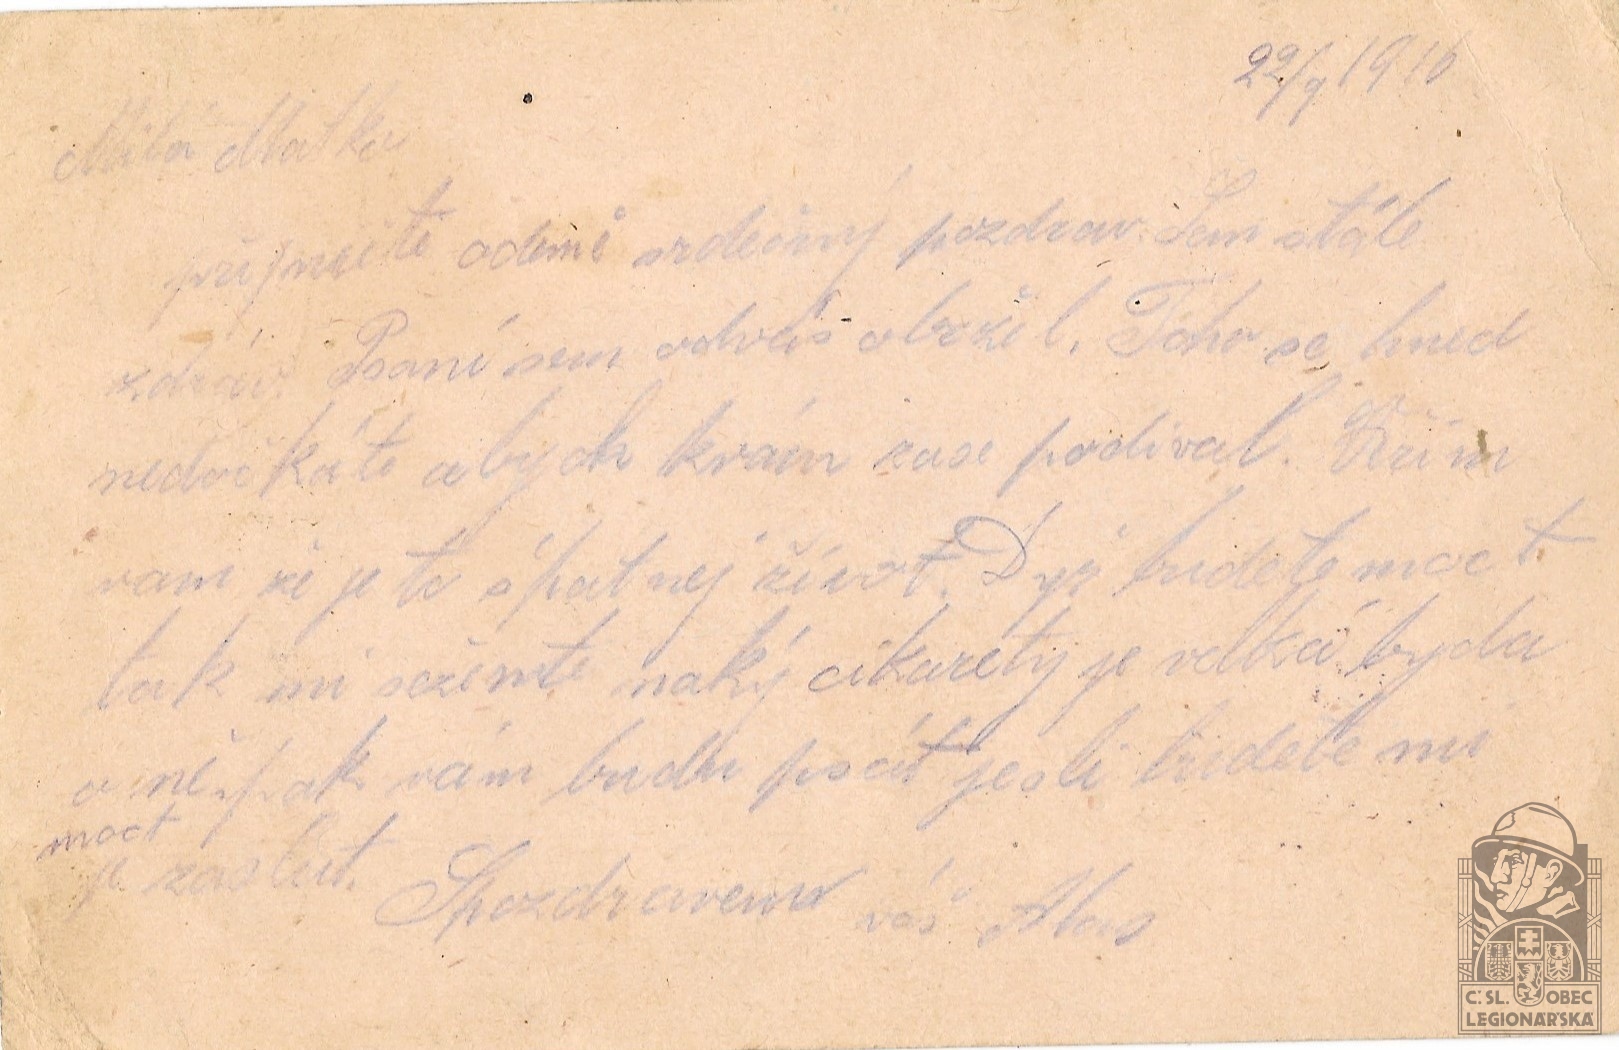 22/9 1916
Milá Matko
přijměte odemě srdečný pozdrav. Sem stále
zdráv. Psaní sem odvás obržel. Toho se hned
nedočkáte abych kvám zase podíval. Věřim
vam že je to špatnej život. Dyž budete moct
tak mi sežente naký cikarety je velká byda
o ně, pak vám budu psát jesli budete mi
moct
je zaslat.
Spozdravem váš Alois
Č. SL. OBEC
LEGIONÁŘSKÁ